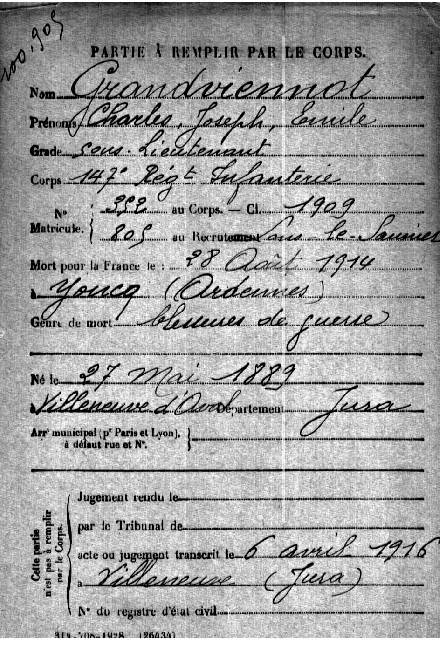 100.905
PARTIE À REMPLIR PAR LE CORPS.
Nom Grandviennot
Prénoms Charles, Joseph, Emile
Grade Sous-Lieutenant
Corps 147e Regt Infanterie
No Matricule. { 292 au Corps. — Cl. 1909
805 au Recrutement Lons-le-Saunier
Mort pour la France le : 28 Août 1914
à Yoncq (Ardennes)
Genre de mort blessures de guerre
Né le 27 Mai 1889
à Villeneuve d'Aval Département Jura
Arrt municipal (pr Paris et Lyon), à défaut rue et No. {
Cette partie n'est pas à remplir par le Corps. {
Jugement rendu le
par le Tribunal de
acte ou jugement transcrit le 6 avril 1916
à Villeneuve (Jura)
No du registre d'état civil
(26434)